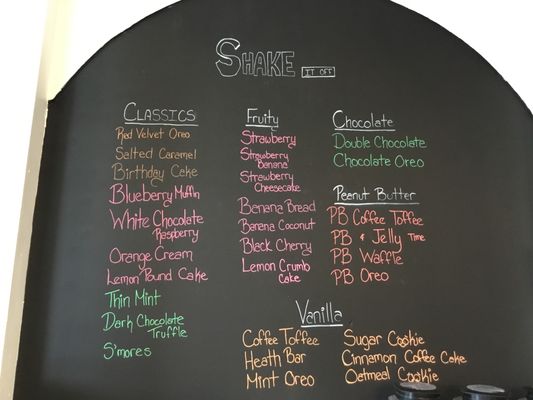 SHAKE IT OFF
CLASSICS
Red Velvet Oreo
Salted Caramel
Birthday Cake
Blueberry Muffin
White Chocolate
Raspberry
Orange Cream
Lemon Pound Cake
Thin Mint
Dark Chocolate
Truffle
S'mores
Fruity
Strawberry
Strawberry
Banana
Strawberry
Cheesecake
Banana Bread
Banana Coconut
Black Cherry
Lemon Crumb
Cake
Chocolate
Double Chocolate
Chocolate Oreo
Peanut Butter
PB Coffee Toffee
PB & Jelly Time
PB Waffle
PB Oreo
Vanilla
Coffee Toffee
Heath Bar
Mint Oreo
Sugar Cookie
Cinnamon Coffee Cake
Oatmeal Cookie